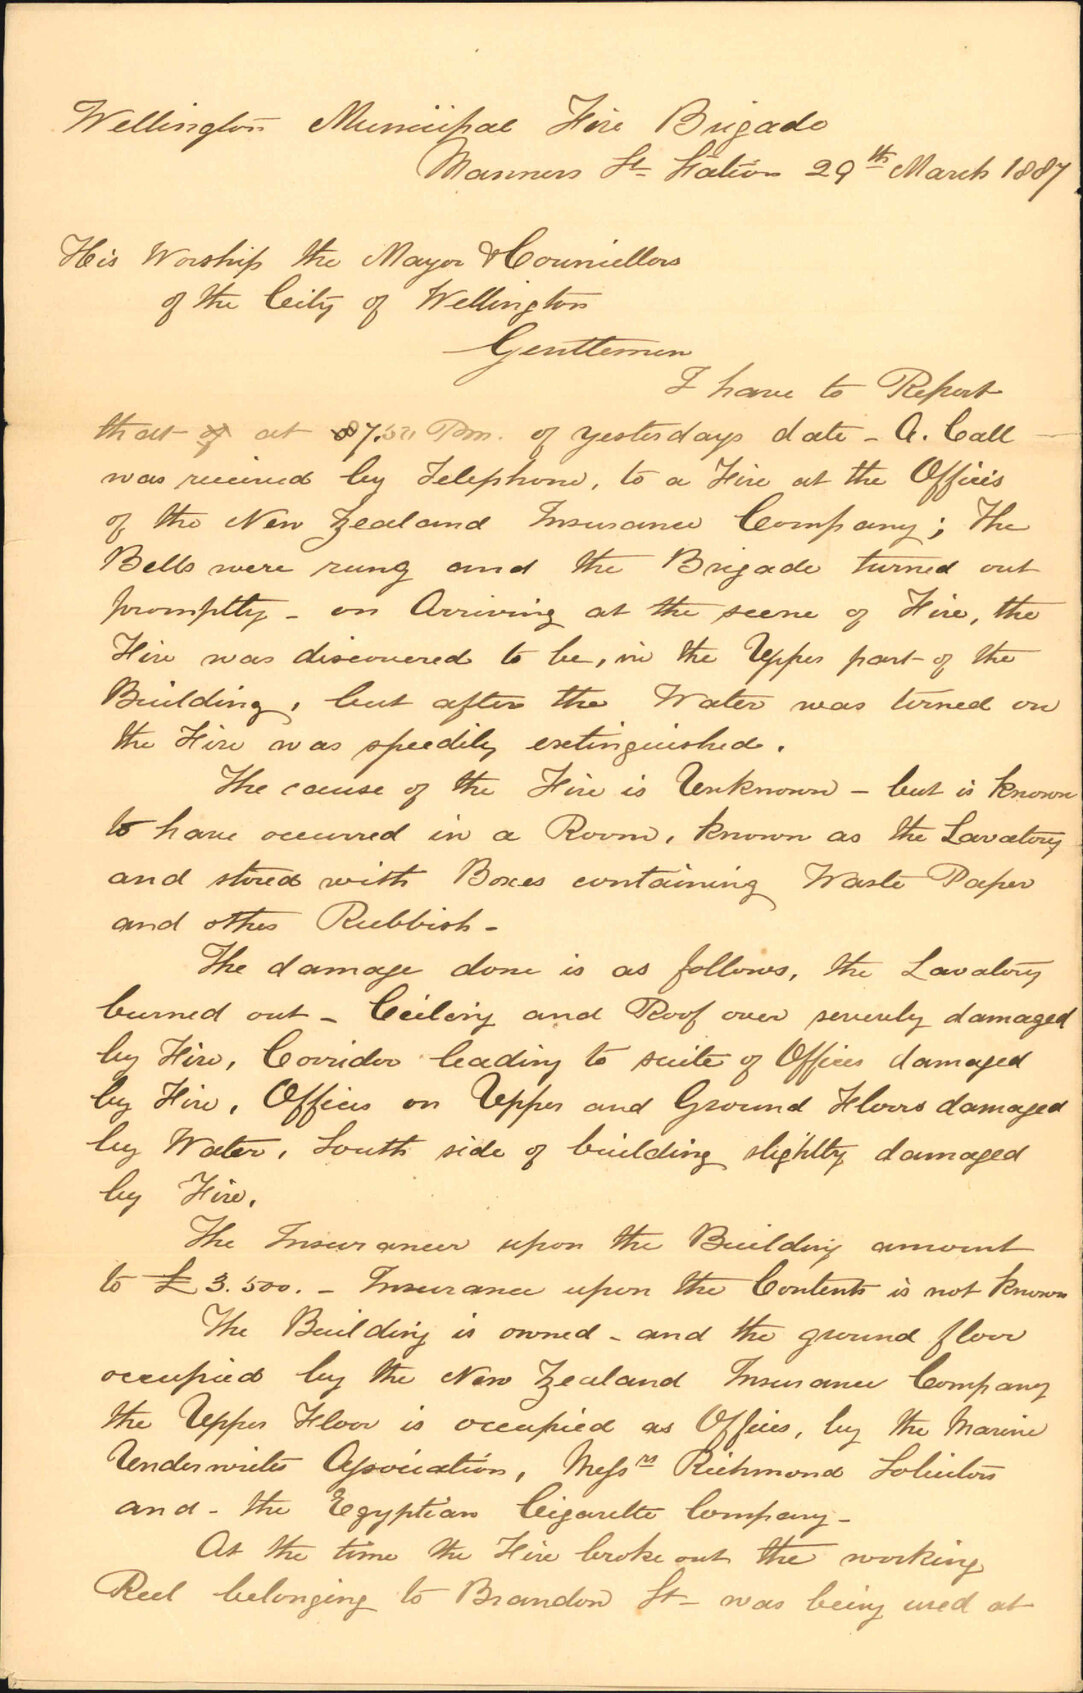 Wellington Municipal Fire Brigade
Manners St Station 29th March 1887
His Worship the Mayor & Councillors
of the City of Wellington
Gentlemen
I have to Report
that at 7.50 Pm. of yesterdays date - A. Call
was received by Telephone, to a Fire at the Offices
of the New Zealand Insurance Company; The
Bells were rung and the Brigade turned out
promptly - on Arriving at the scene of Fire, the
Fire was discovered to be, in the Upper part of the
Building, but after the Water was turned on
the Fire was speedily extinguished.
The cause of the Fire is Unknown - but is known
to have occurred in a Room, known as the Lavatory
and stored with Boxes containing Waste Paper
and other Rubbish -
The damage done is as follows, the Lavatory
burned out - Ceiling and Roof over severely damaged
by Fire, Corridor leading to suite of Offices damaged
by Fire, Offices on Upper and Ground Floors damaged
by Water, South side of building slightly damaged
by Fire.
The Insurances upon the Building amount
to £3.500. - Insurance upon the Contents is not known
The Building is owned - and the ground floor
occupied by the New Zealand Insurance Company
the Upper Floor is occupied as Offices, by the Marine
Underwriters Association, Messrs Richmond Solicitors
and - the Egyptian Cigarette Company -
At the time the Fire broke out the working
Reel belonging to Brandon St - was being used at